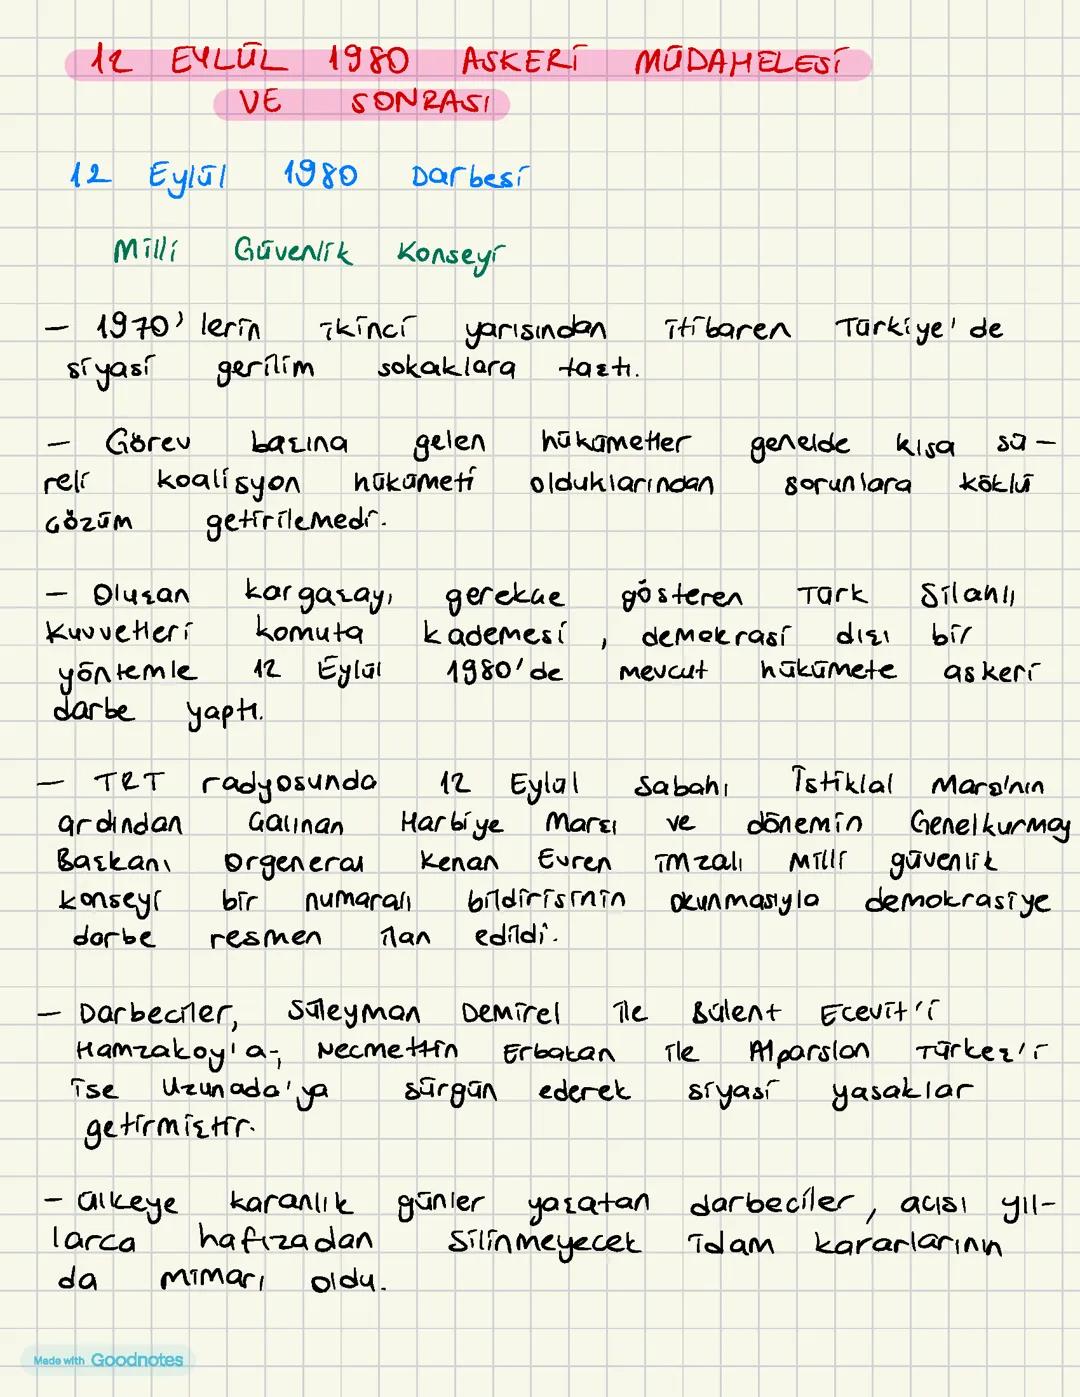 12 EYLÜL 1980 ASKERİ MÜDAHELESİ
VE SONRASI
12 Eylül 1980 Darbesi
Milli Güvenlik Konseyi
- 1970'lerin ikinci yarısından itibaren Türkiye'de
siyasi gerilim sokaklara taştı.
- Görev başına gelen hükümetler genelde kısa sü-
reli koalisyon hükümeti olduklarından sorunlara köklü
çözüm getirilemedi.
- Oluşan kargaşayı gerekçe gösteren Türk Silahlı
Kuvvetleri komuta kademesi, demokrasi dışı bir
yöntemle 12 Eylül 1980'de mevcut hükümete askeri
darbe yaptı.
- TRT radyosunda 12 Eylül Sabahı İstiklal Marşı'nın
ardından Çalınan Harbiye Marşı ve dönemin Genelkurmay
Başkanı Orgeneral Kenan Evren imzalı Milli güvenlik
konseyi bir numaralı bildirisinin okunmasıyla demokrasiye
darbe resmen ilan edildi.
- Darbeciler, Süleyman Demirel ile Bülent Ecevit'i
Hamzakoy'a, Necmettin Erbakan ile Alparslan Türkeş'i
ise Uzunada'ya sürgün ederek siyasi yasaklar
getirmiştir.
- Ülkeye karanlık günler yaşatan darbeciler, acısı yıl-
larca hafızadan silinmeyecek idam kararlarının
da mimarı oldu.
Made with Goodnotes